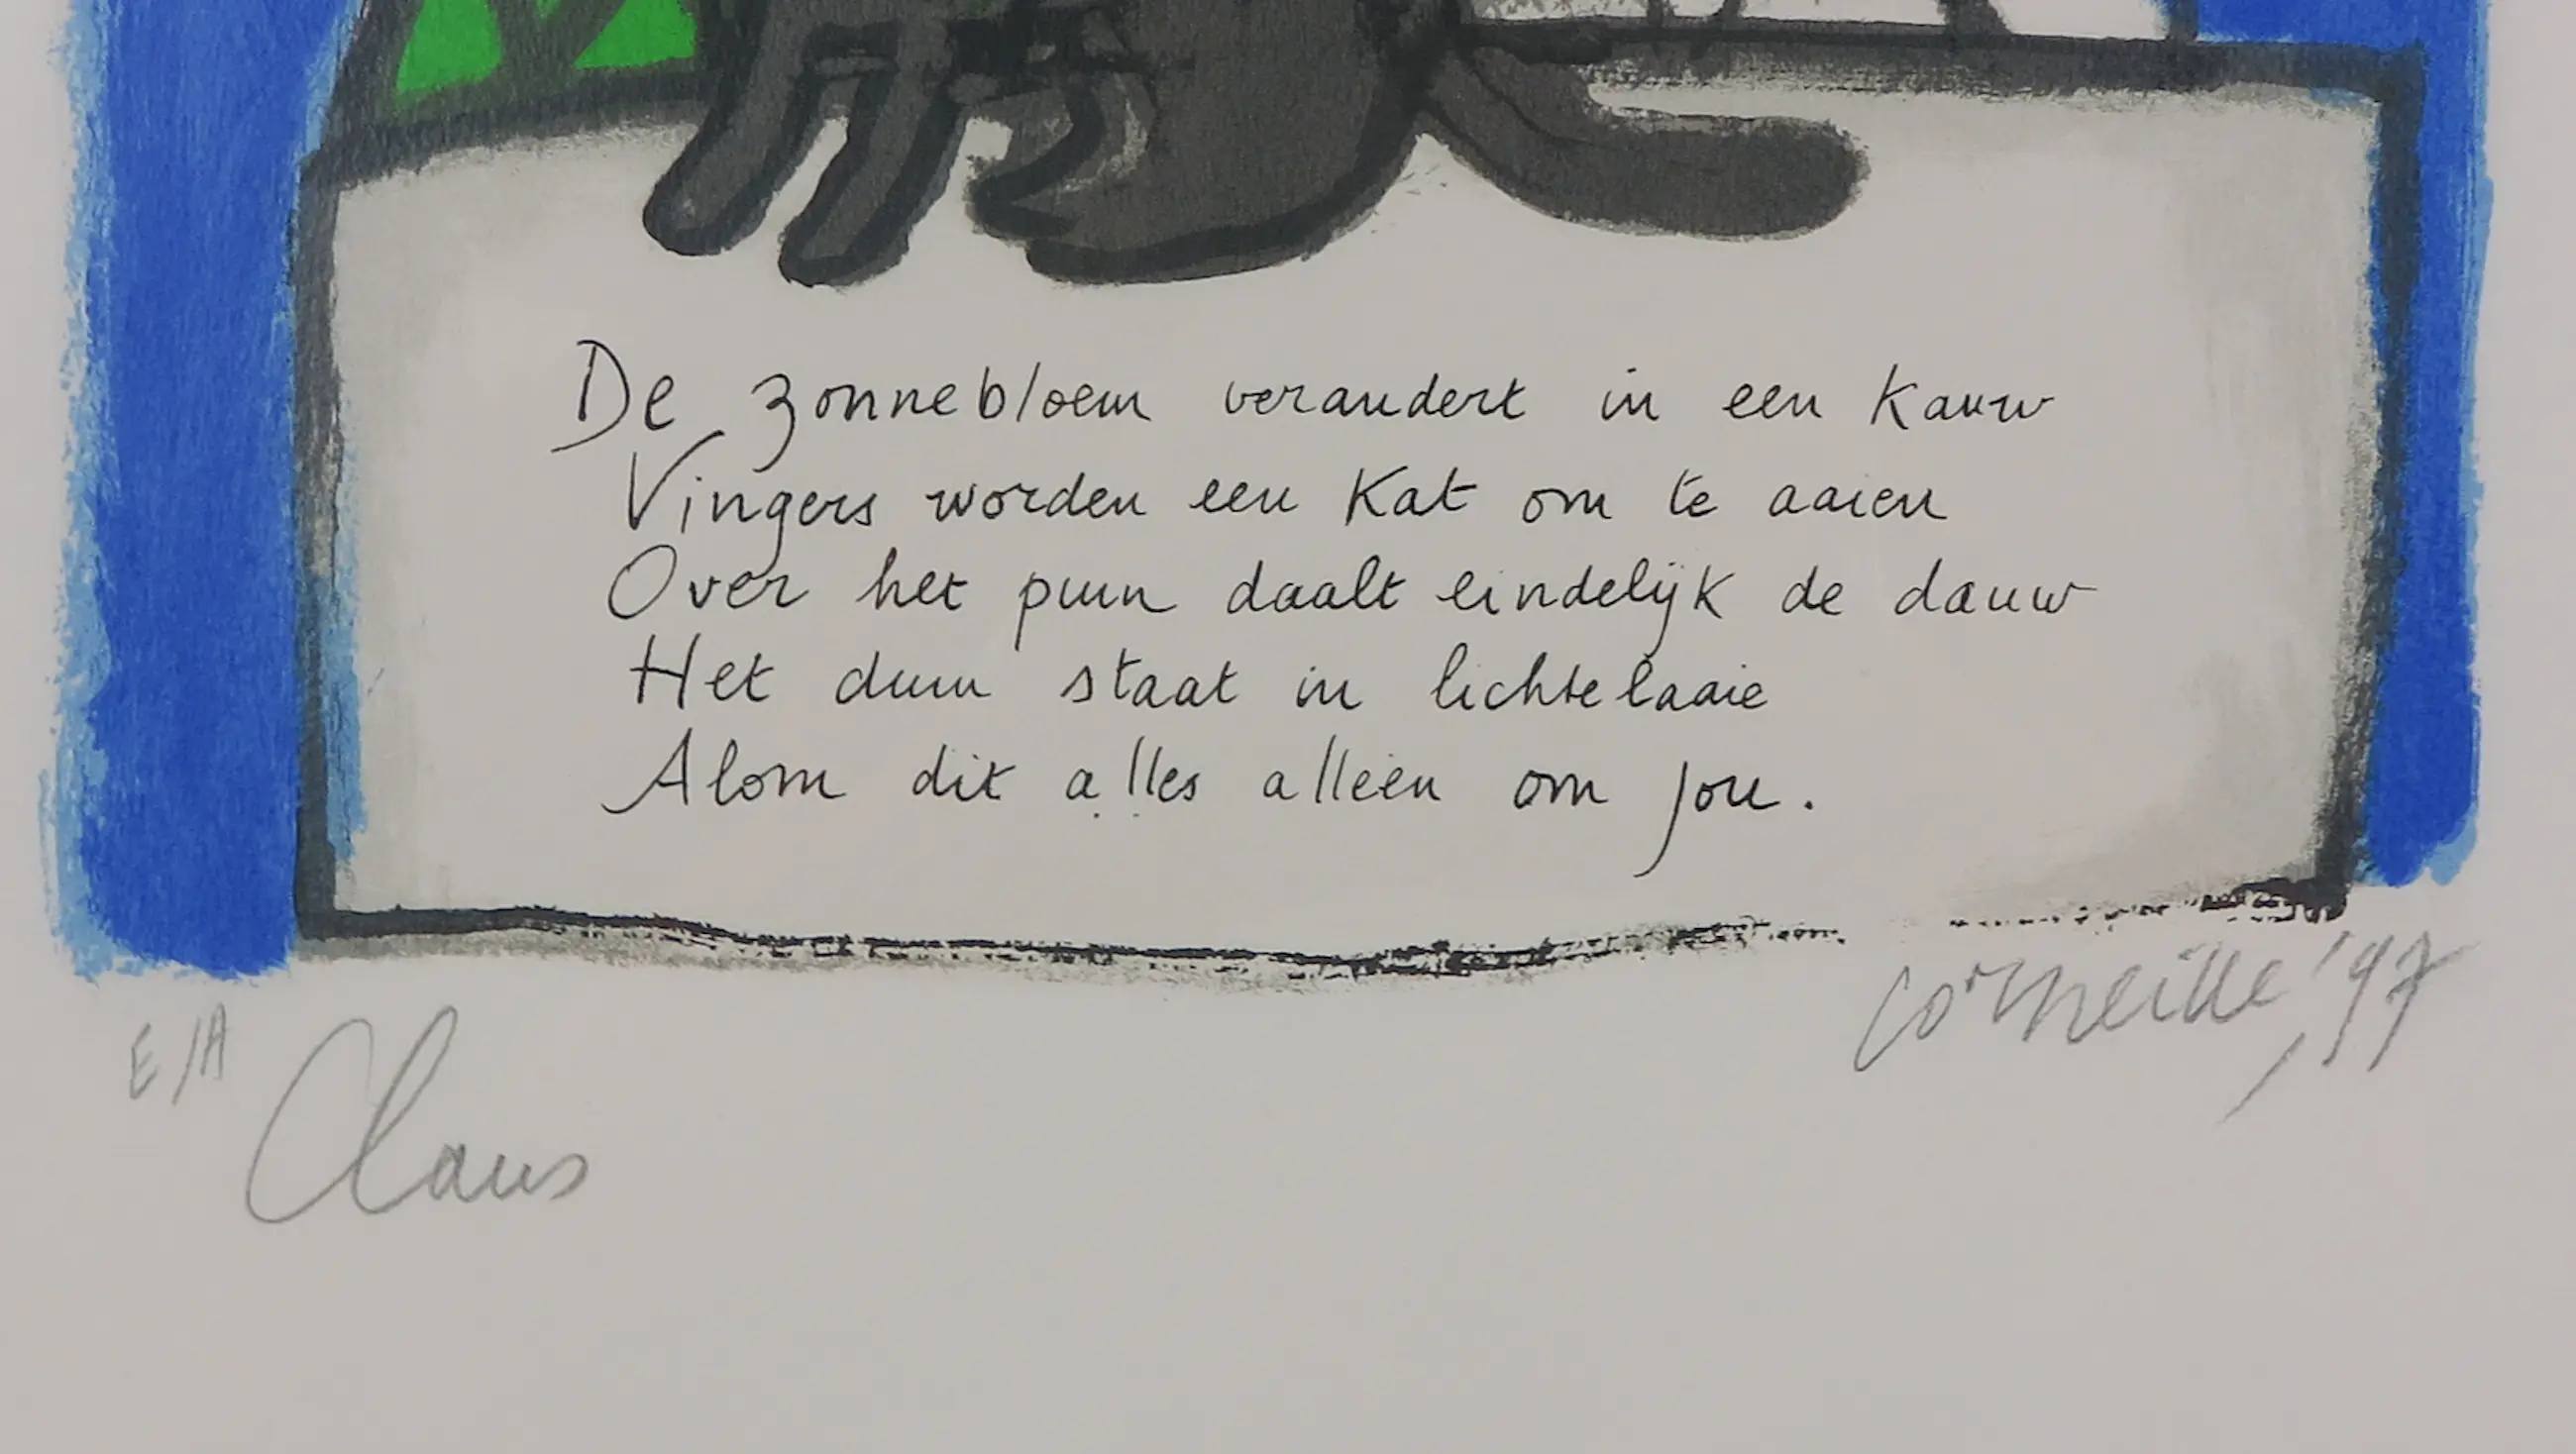 De zonnebloem verandert in een kauw
Vingers worden een kat om te aaien
Over het puin daalt eindelijk de dauw
Het duin staat in lichtelaaie
Alom dit alles alleen om jou.
E/A
Claus
Corneille, '97